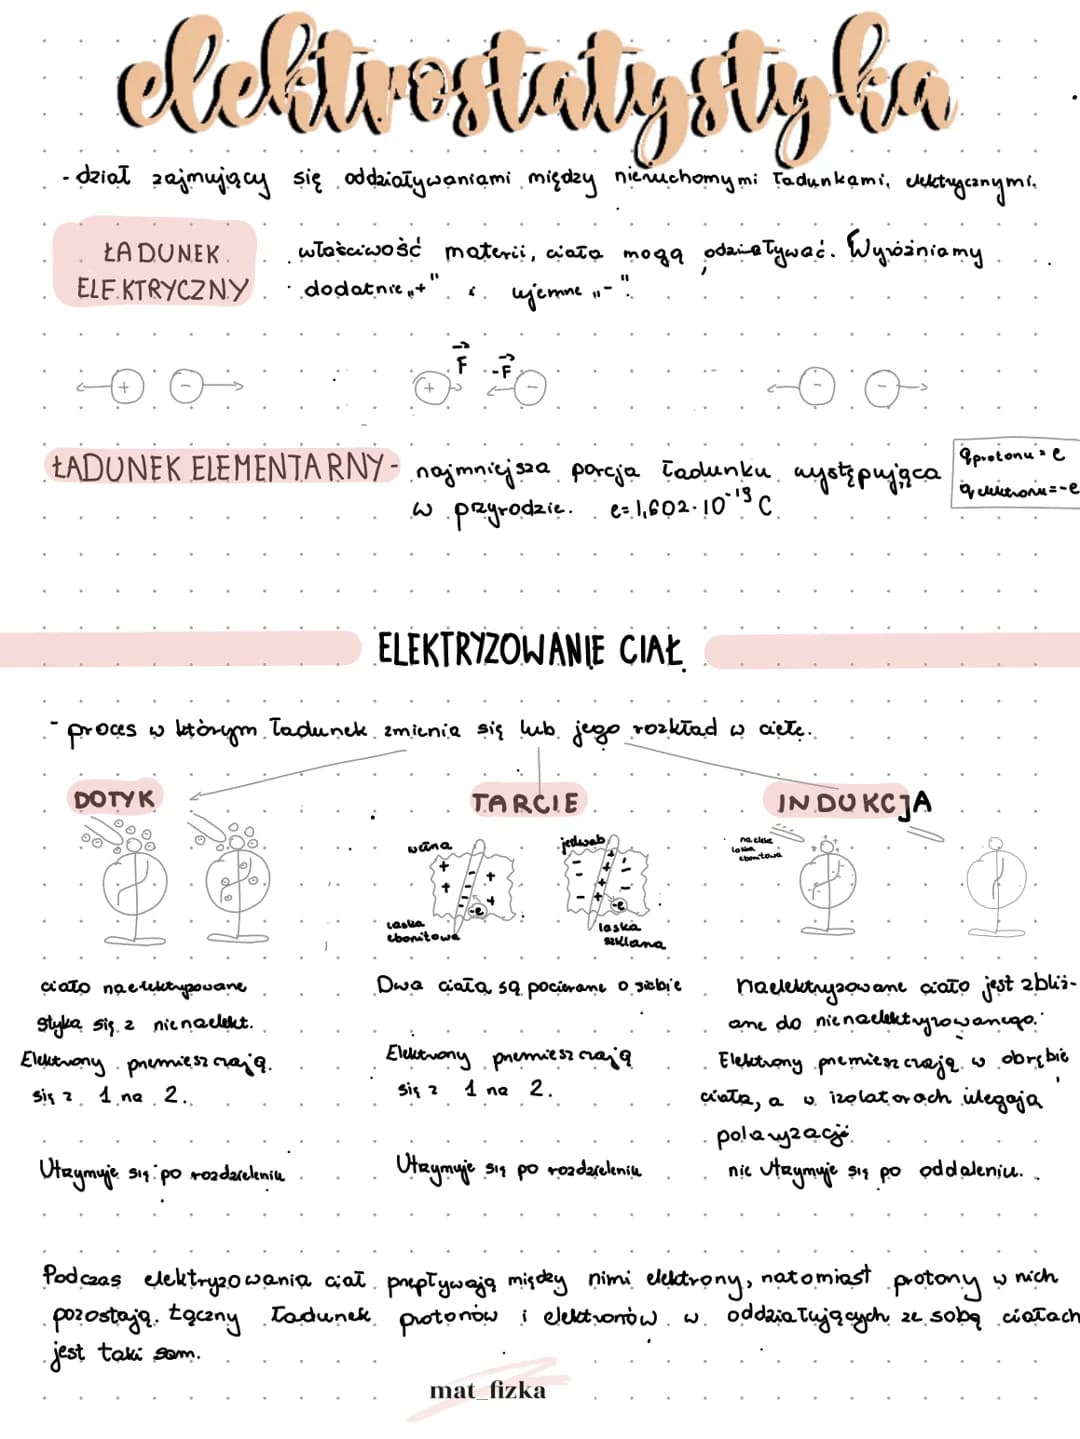 elektrostatystyka
- dział zajmujący się oddziaływaniami między nieruchomymi ładunkami elektrycznymi.
ŁADUNEK ELEKTRYCZNY
właściwość materii, ciała mogą odziaływać. Wyróżniamy
dodatnie „+" i ujemne „-".
+ -
F -F
+ -
- -
ŁADUNEK ELEMENTARNY - najmniejsza porcja ładunku występująca
w przyrodzie. e=1,602·10⁻¹⁹ C
q protonu = e
q elektronu = -e
ELEKTRYZOWANIE CIAŁ
- proces w którym ładunek zmienia się lub jego rozkład w ciele.
DOTYK
ciało naelektryzowane
styka się z nienaelekt.
Elektrony przemieszczają
się z 1 na 2.
Utrzymuje się po rozdzieleniu
TARCIE
wełna
laska
ebonitowa
jedwab
laska
szklana
Dwa ciała są pocierane o siebie
Elektrony przemieszczają
się z 1 na 2.
Utrzymuje się po rozdzieleniu
INDUKCJA
ebonitowa
naelektryzowane ciało jest zbliż-
ane do nienaelektryzowanego.
Elektrony przemieszczają w obrębie
ciała, a w izolatorach ulegają
polaryzacji
nie utrzymuje się po oddaleniu.
Podczas elektryzowania ciał przepływają między nimi elektrony, natomiast protony w nich
pozostają. Łączny ładunek protonów i elektronów w oddziałujących ze sobą ciałach
jest taki sam.
mat_fizka